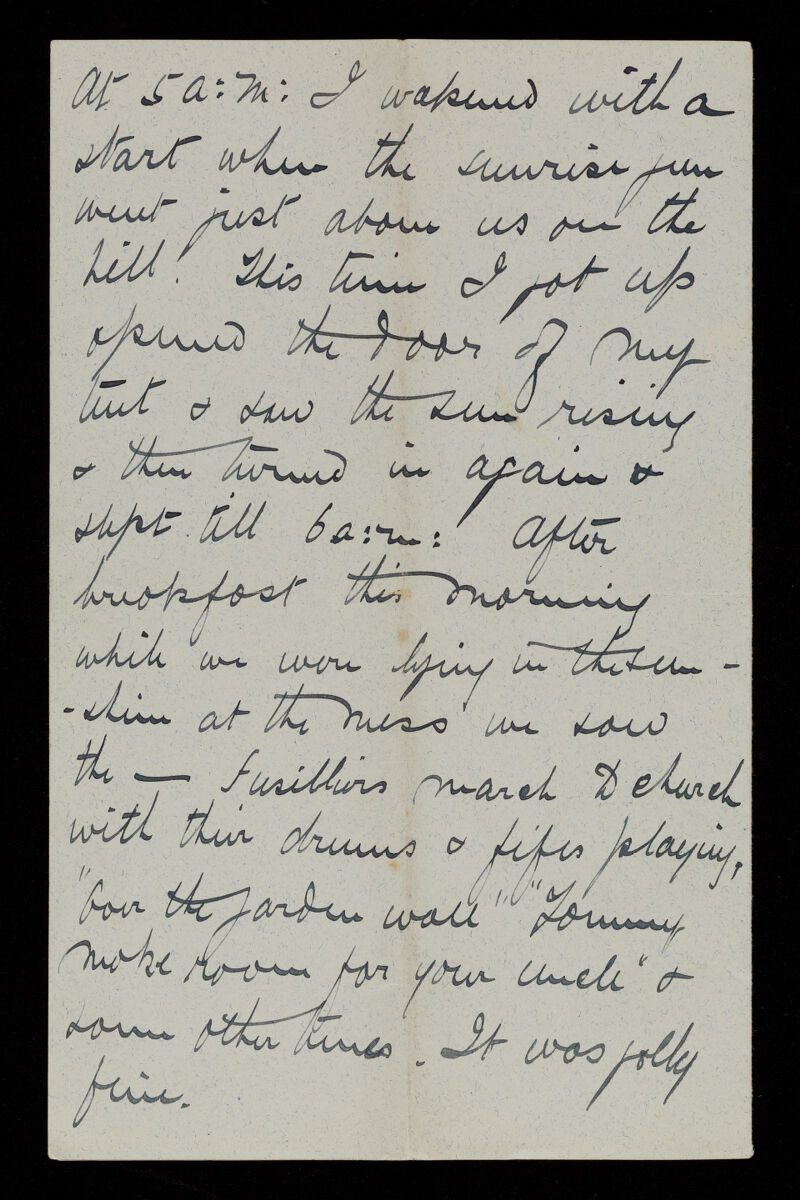 At 5 a:m: I wakened with a
start when the sunrise gun
went just above us on the
hill! This time I got up
opened the door of my
tent & saw the sun rising
& then turned in again &
slept till 6 a:m: After
breakfast this morning
while we were lying in the sun-
-shine at the mess we saw
the — Fusilliers march to church
with their drums & fifes playing,
"Over the garden wall" "Tommy
make room for your uncle" &
some other tunes. It was jolly
fine.